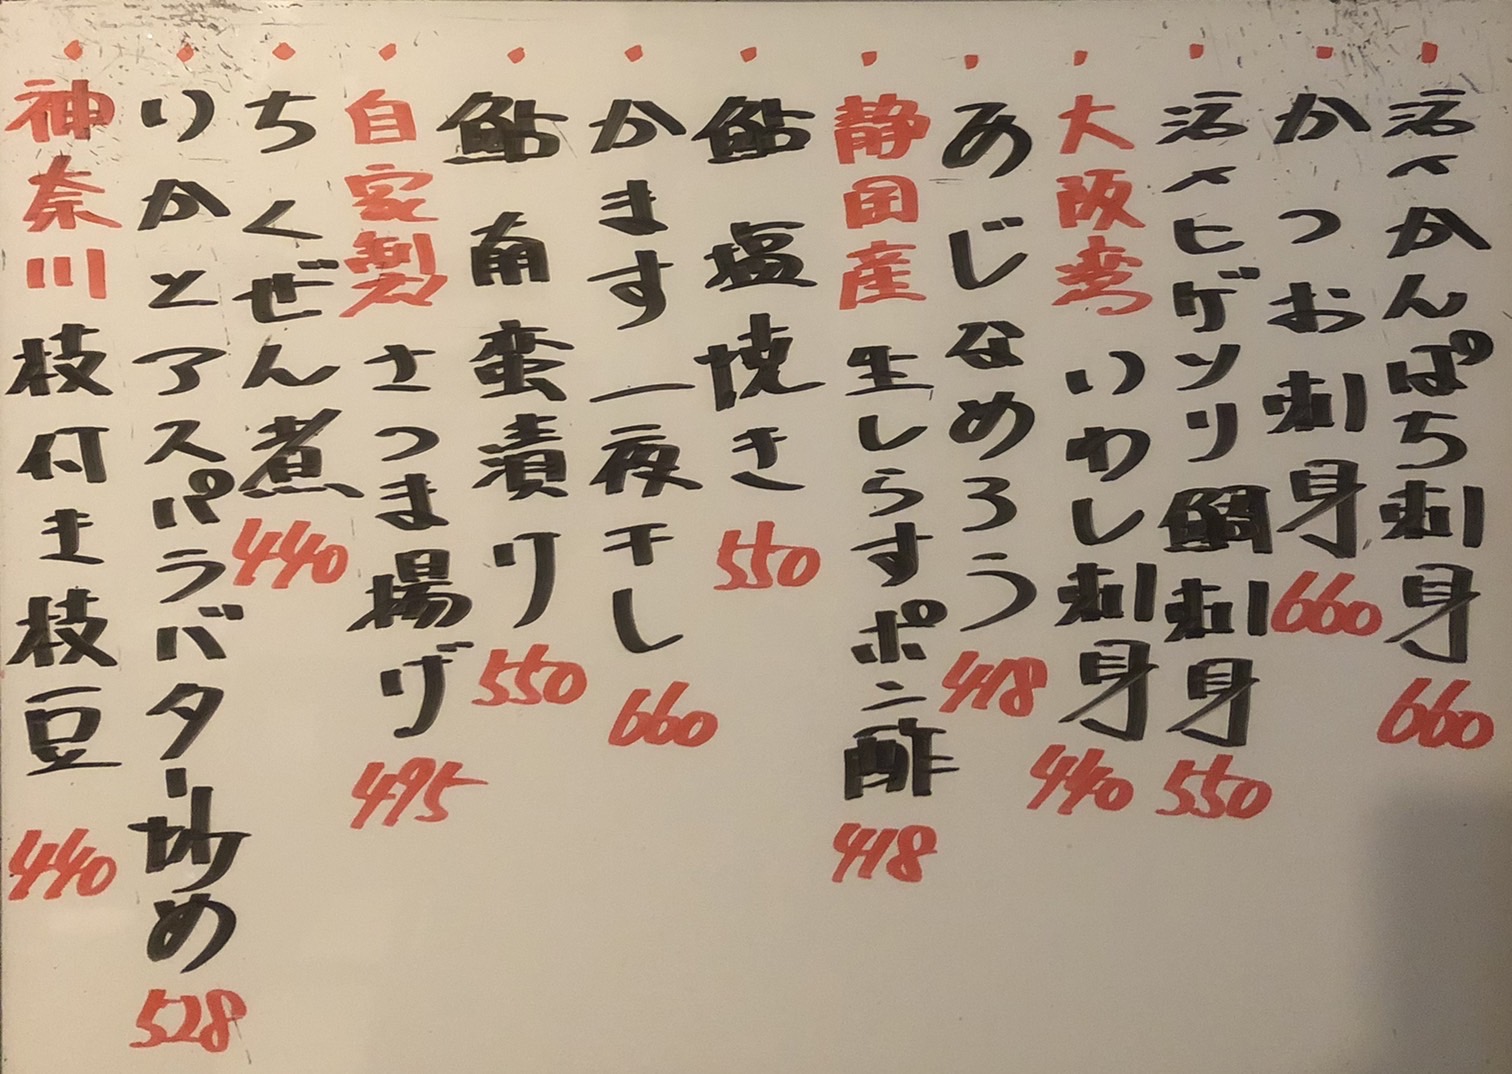 活〆かんぱち刺身 660
かつお刺身 660
活〆ヒゲソリ鯛刺身 550
大阪湾いわし刺身 440
あじなめろう 418
静岡産生しらすポン酢 418
鮎塩焼き 550
かます一夜干し 660
鮎南蛮漬け 550
自家製さつま揚げ 495
ちくぜん煮 440
いかとアスパラバター炒め 528
神奈川枝付き枝豆 440